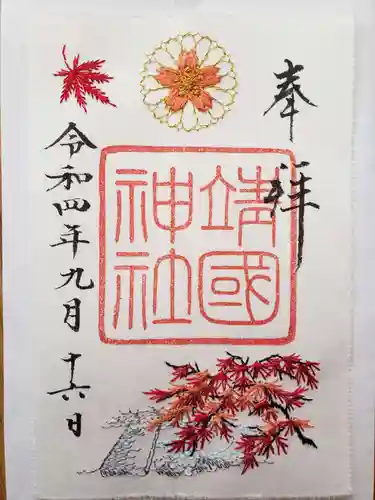 奉拝
靖國神社
令和四年九月十六日